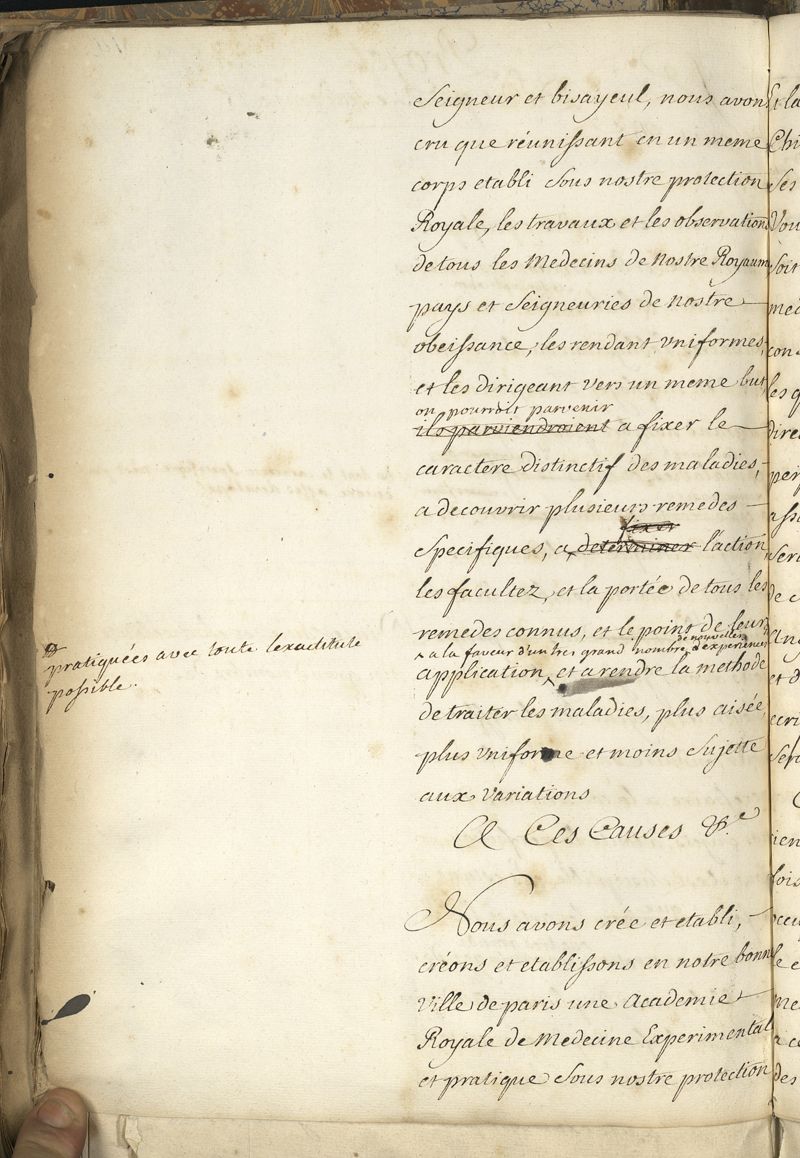 Seigneur et bisayeul, nous avons
cru que réunissant en un meme
corps etabli sous nostre protection
Royale, les travaux et les observations
de tous les Medecins de Nostre Royaume
pays et Seigneuries de nostre
obeissance, les rendant uniformes,
et les dirigeant vers un meme but
on pourroit parvenir
ils parviendroient a fixer le
caractere distinctif des maladies,
a decouvrir plusieurs remedes
fixer
specifiques, a determiner l'action,
les facultez, et la portée de tous les
remedes connus, et le point de leur
de nouvelles
a la faveur d'un tres grand nombre d'experiences
application, et a rendre la methode
de traiter les maladies, plus aisée,
plus uniforme et moins sujette
aux variations
A Ces Causes &c
Nous avons crée et etabli,
créons et etablissons en notre bonne
Ville de paris une Academie
Royale de Medecine Experimentale
et pratique sous nostre protection
pratiquées avec toute lexactitute
possible.